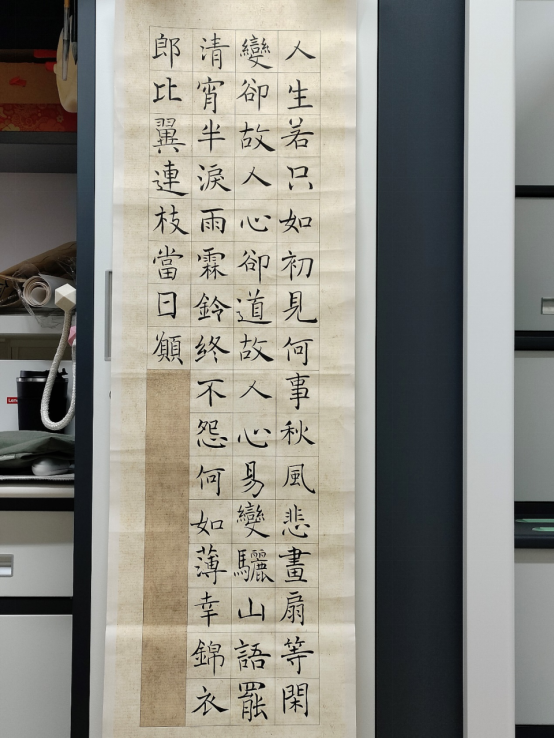 人生若只如初見何事秋風悲畫扇等閑
變卻故人心卻道故人心易變驪山語罷
清宵半淚雨霖鈴終不怨何如薄幸錦衣
郎比翼連枝當日願